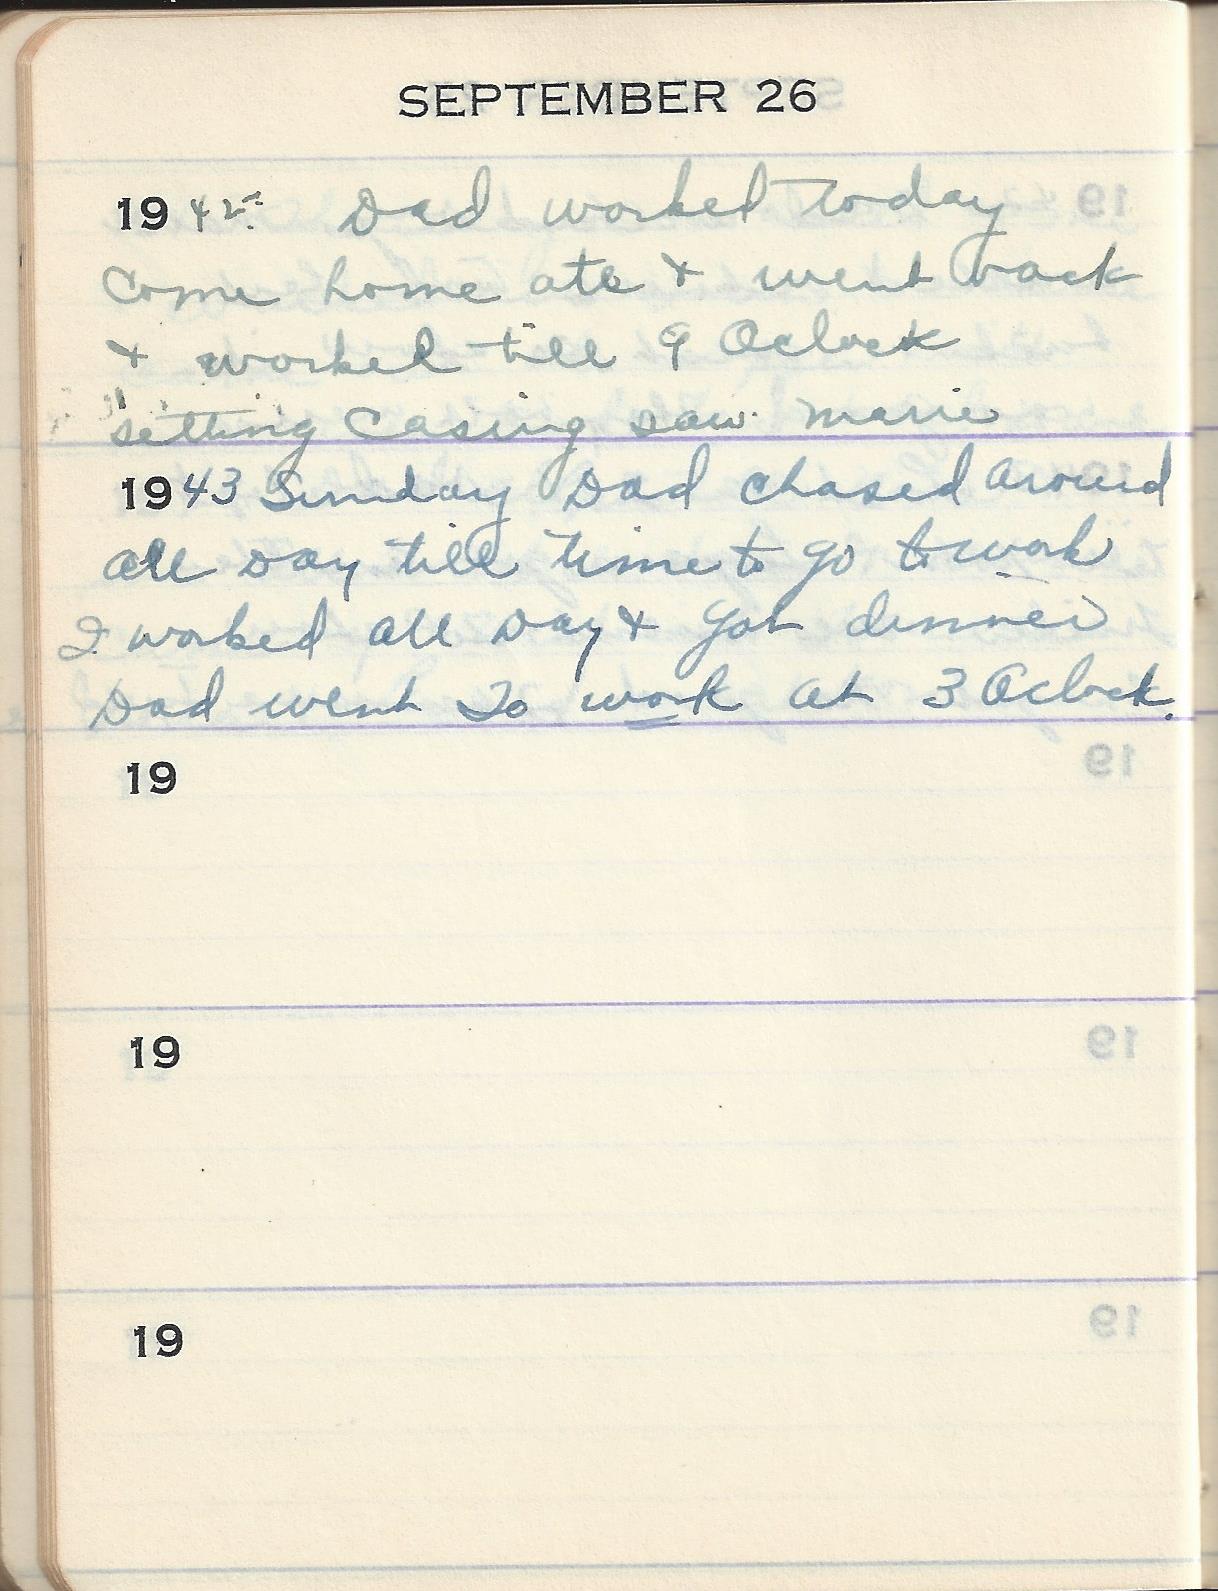 SEPTEMBER 26
1942 Dad worked today
Come home ate & went back
& worked till 9 Oclock
setting Casing saw Marie
1943 Sunday Dad chased around
all Day till time to go to work
I worked all Day & got dinner
Dad went To work at 3 Oclock.
19
19
19